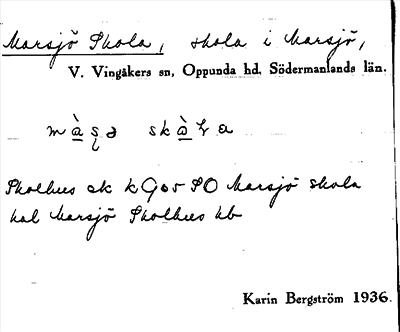 Marsjö Skola, skola i Marsjö,
V. Vingåkers sn, Oppunda hd, Södermanlands län.
Skolhus ek k 9o5 SO Marsjö skola
hal Marsjö Skolhus hb
Karin Bergström 1936.